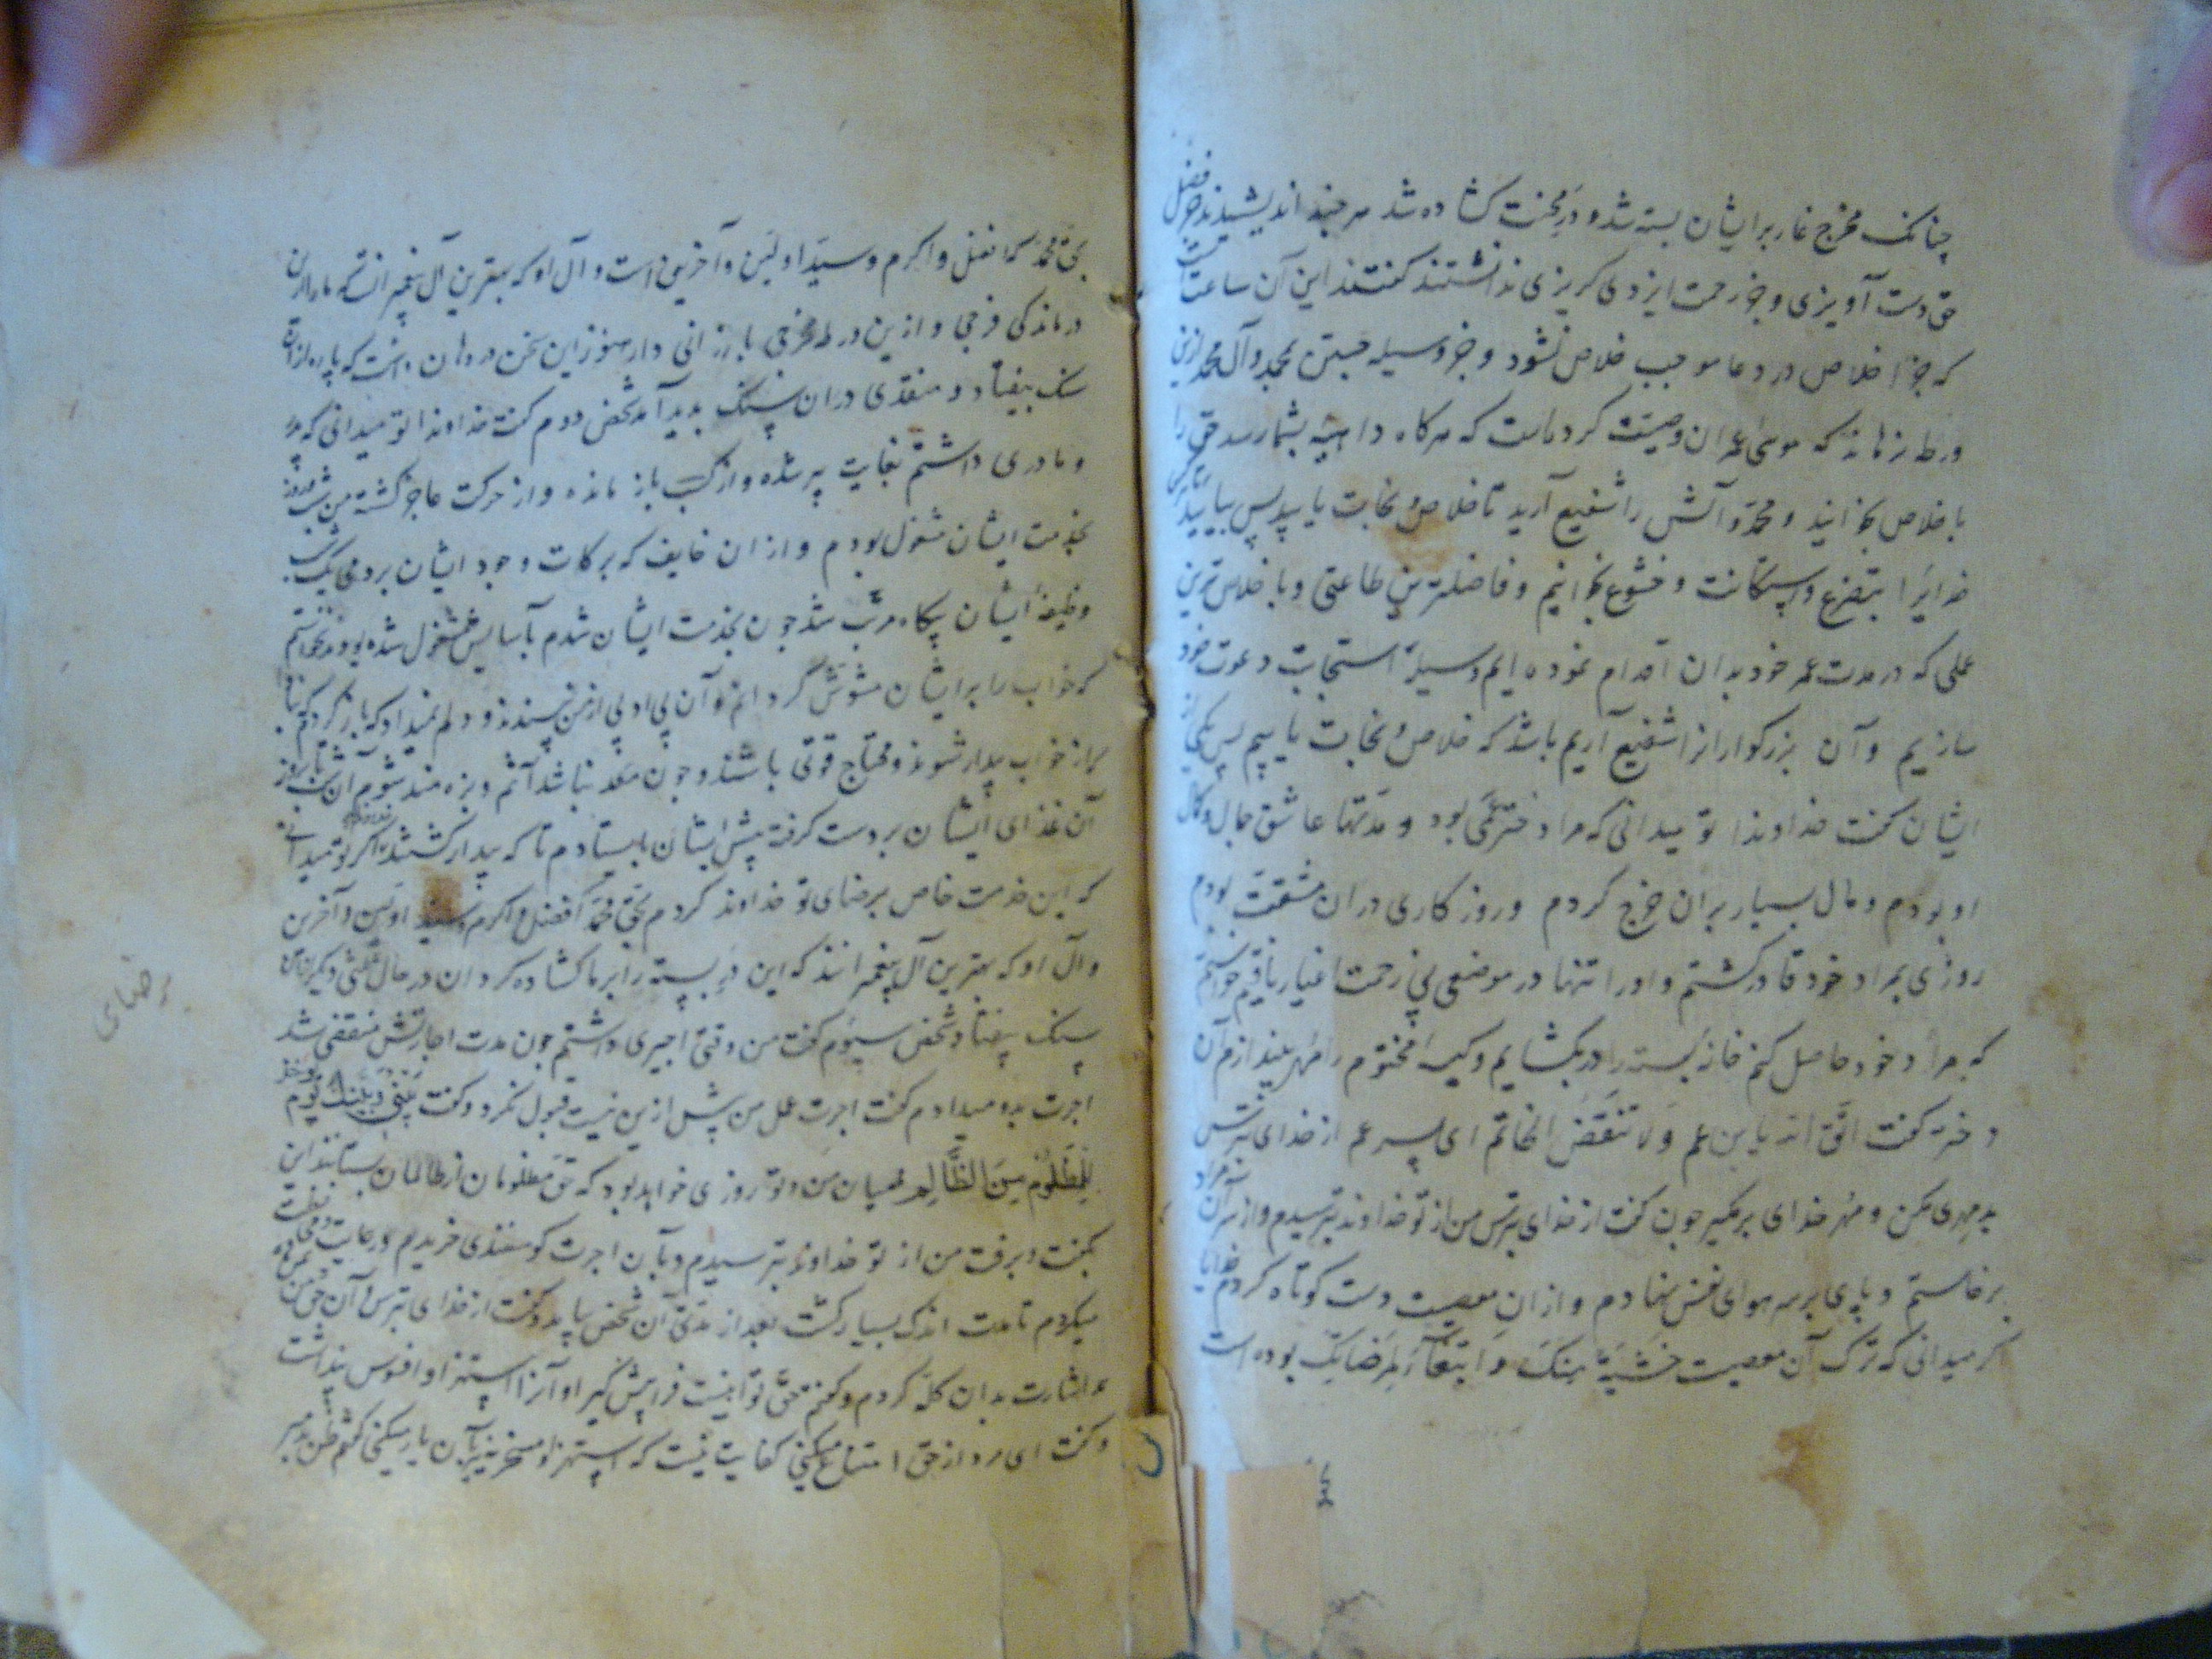 چنانک مخرج غار بر ایشان بسته شد و در محنت کشاده شد هر چند اندیشیدند جز فضل
حق دست آویزی و جز رحمت ایزدی کریزی ندانستند کفتند این آن ساعتست
که جز اخلاص در دعا موجب خلاص نشود و جز وسیله جستن بمحمد و آل محمد ازین
ورطه نرهاند که موسی عمران وصیت کرده است که هرکاه داهیه بشما رسد حق را
باخلاص بخوانید و محمد و آلش را شفیع آرید تا خلاص و نجات یابید پس بیایید تا
خدایرا بتضرع و استکانت و خشوع بخوانیم و فاضلترین طاعتی و باخلاص ترین
عملی که در مدت عمر خود بدان اقدام نموده ایم وسیلۀ استجابت دعوت خود
سازیم و آن بزرکوارانرا شفیع آریم باشد که خلاص و نجات یابیم پس یکی از
ایشان کفت خداوندا تو میدانی که مرا دختر عمی بود و مدتها عاشق جمال و کمال
او بودم و مال بسیار بران خرج کردم و روزکاری دران مشقت بودم
روزی بمراد خود قادر کشتم و او را تنها در موضعی بی زحمت اغیار یافتم خواستم
که مراد خود حاصل کنم خانۀ بسته را در بکشایم و کیسۀ مختوم را مهر بیندازم آن
دختر کفت اتق الله یا بن عم ولا تنقض الخاتم ای پسر عم از خدای بترس
بد مهری مکن و مهر خدای برمکیر چون کفت از خدای بترس من از تو خداوند بترسیدم و از سر آن مراد
برخاستم و پای بر سر هوای نفس نهادم و ازان معصیت دست کوتاه کردم خدایا
کر میدانی که ترک آن معصیت خشیة منک وابتغاء لمرضاتک بوده است
بحق
بحق محمد که افضل و اکرم و سید اولین و آخرین است و آل او که بهترین آل پیغمبرانند که ما را ازین
درماندکی فرجی و ازین ورطه مخرجی ارزانی دار هنوز این سخن در دهان داشت که پاره از آن
سنک بیفتاد و منفذی دران سنک پدید آمد شخص دوم کفت خداوندا تو میدانی که پدر
و مادری داشتم بغایت پیر شده و از کسب باز مانده و از حرکت عاجز کشته من شب و روز
بخدمت ایشان مشغول بودم و ازان خایف که برکات وجود ایشان برود یک شب
وظیفۀ ایشان بیکاه مرتب شد چون بخدمت ایشان شدم بآسایش مشغول شده بودند نخواستم
که خواب را بر ایشان مشوش کردانم که آن بی ادبی از من نپسندند و دلم نمیداد که باز کردم که نباید
که از خواب بیدار شوند و محتاج قوتی باشند و چون معد نباشد آثم و بزه مند شوم آن شب تا روز
آن غذای ایشان بر دست کرفته پیش ایشان بایستادم تا که بیدار کشتند اکر تو میدانی
که این خدمت خاص برضای تو خداوند کردم بحق محمد افضل و اکرم و سید اولین و آخرین
و آل او که بهترین آل پیغمبرانند که این در بسته را بر ما کشاده کردان در حال ثلثی دیکر ازان
سنک بیفتاد شخص سیوم کفت من وقتی اجیری داشتم چون مدت اجارتش منقضی شد
اجرت بدو میدادم کفت اجرت عمل من بیش ازین نیست قبول نکرد و کفت بینی وبینک یوم یؤخذ
للمظلوم من الظالم میان من و تو روزی خواهد بود که حق مظلومان از ظالمان بستانند این
بکفت و برفت من از تو خداوند بترسیدم و بآن اجرت کوسفندی خریدم و رعایت و محافظت
میکردم تا مدت اندک بسیار کشت بعد از مدتی آن شخص بیامد و کفت از خدای بترس و آن حق من بده
من اشارت بدان کله کردم و کفتم حق تو اینست فرا پیش کیر او آنرا استهزا و افسوس پنداشت
و کفت ای مرد از حق امتناع میکنی کفایت نیست که استهزا و سخریه بآن یار میکنی کفتم ظن مبر
رضای